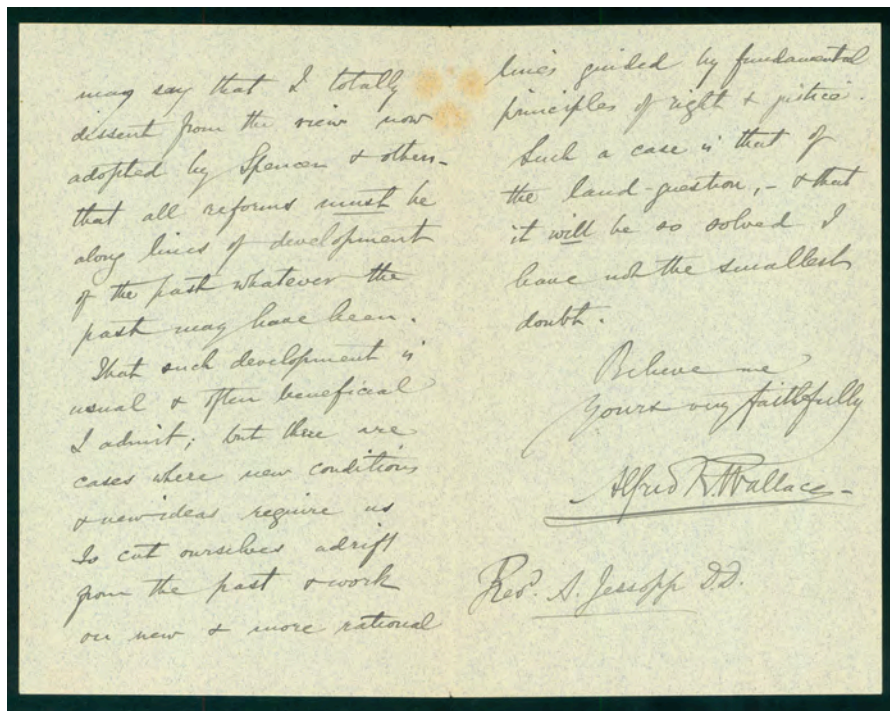 may say that I totally
dissent from the view now
adopted by Spencer & others-
that all reforms must be
along lines of development
of the past whatever the
past may have been.
That such development is
usual & often beneficial
I admit; but there are
cases where new conditions
& new ideas require us
to cut ourselves adrift
from the past & work
on new & more rational
lines guided by fundamental
principles of right & justice.
Such a case is that of
the land-question, - & that
it will be so solved I
have not the smallest
doubt.
Believe me
Yours very faithfully
Alfred R. Wallace-
Revd. A. Jessopp D.D.